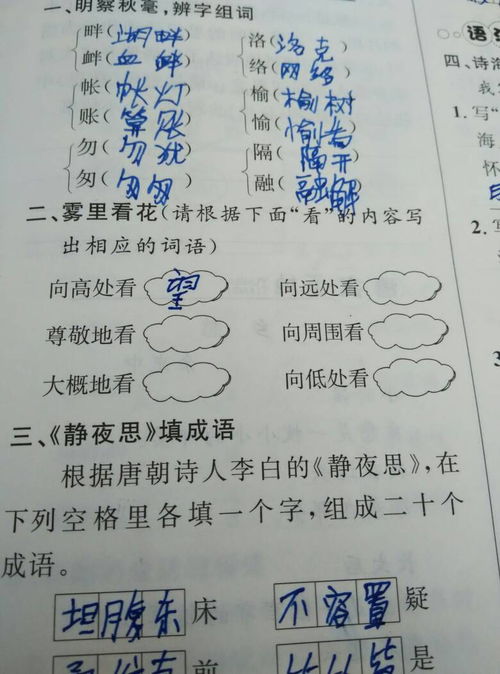 一、明察秋毫，辨字组词
畔(湖畔) 洛(洛克)
衅(血衅) 络(网络)
帐(帐灯) 榆(榆树)
账(算账) 愉(愉看)
勿(勿犹) 隔(隔开)
匆(匆匆) 融(融解)
二、雾里看花(请根据下面“看”的内容写
出相应的词语)
向高处看 望 向远处看
尊敬地看 向周围看
大概地看 向低处看
三、《静夜思》填成语
根据唐朝诗人李白的《静夜思》，在
下列空格里各填一个字，组成二十个
成语。
坦腹东床 不容置疑
前 皆是
语
四、诗海
我
1. 写“
海
怀
2.
3